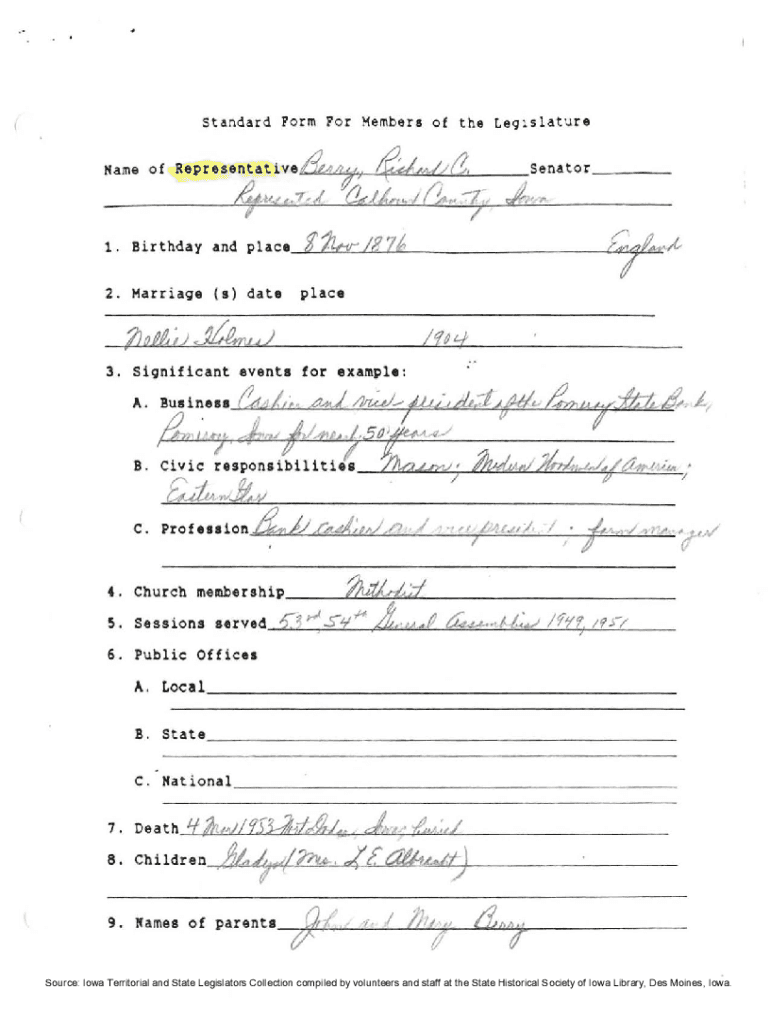 Standard Form For Members of the Legislature
Name of Representative Berry, Richard C. Senator
Represented Calhoun County, Iowa
1. Birthday and place 8 Nov 1876 England
2. Marriage (s) date place
Nellie Holmes 1904
3. Significant events for example:
A. Business Cashier and vice president of the Pomeroy State Bank,
Pomeroy, Iowa for nearly 50 years
B. Civic responsibilities Mason; Modern Woodmen of America;
Eastern Star
C. Profession Bank cashier and vice president; farm manager
4. Church membership Methodist
5. Sessions served 53rd, 54th General Assemblies 1949, 1951
6. Public Offices
A. Local
B. State
C. National
7. Death 4 1953 Fort Dodge, Iowa; buried
8. Children Gladys (Mrs. L. E. Albrecht)
9. Names of parents John and Mary Berry
Source: Iowa Territorial and State Legislators Collection compiled by volunteers and staff at the State Historical Society of Iowa Library, Des Moines, Iowa.